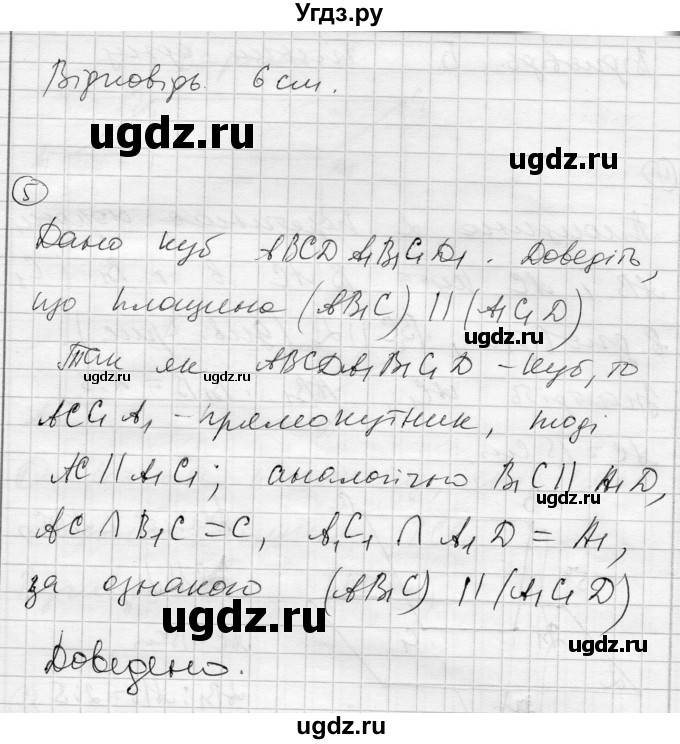 Угдз.ру
Відповідь. 6 см.
ugdz.ru
ugdz.ru
5
Дано куб ABCDA₁B₁C₁D₁. Доведіть,
що площина (AB₁C) || (A₁C₁D)
ugdz.ru
Так як ABCDA₁B₁C₁D – куб, то
ugdz.ru ugdz.ru
ACC₁A₁ – прямокутник, тоді
AC || A₁C₁; аналогічно B₁C || A₁D,
ugdz.ru
AC ∩ B₁C = C, A₁C₁ ∩ A₁D = A₁,
за ознакою (AB₁C) || (A₁C₁D)
ugdz.ru
ugdz.ru
Доведено.
ugdz.ru